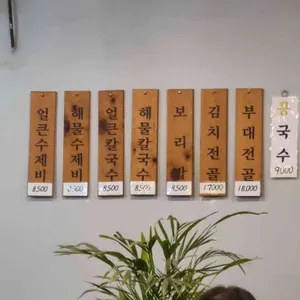 얼큰수제비
8,500
해물수제비
8,500
얼큰칼국수
8,500
해물칼국수
8,500
보리밥
8,500
김치전골
17,000
부대전골
18,000
콩국수
9,000